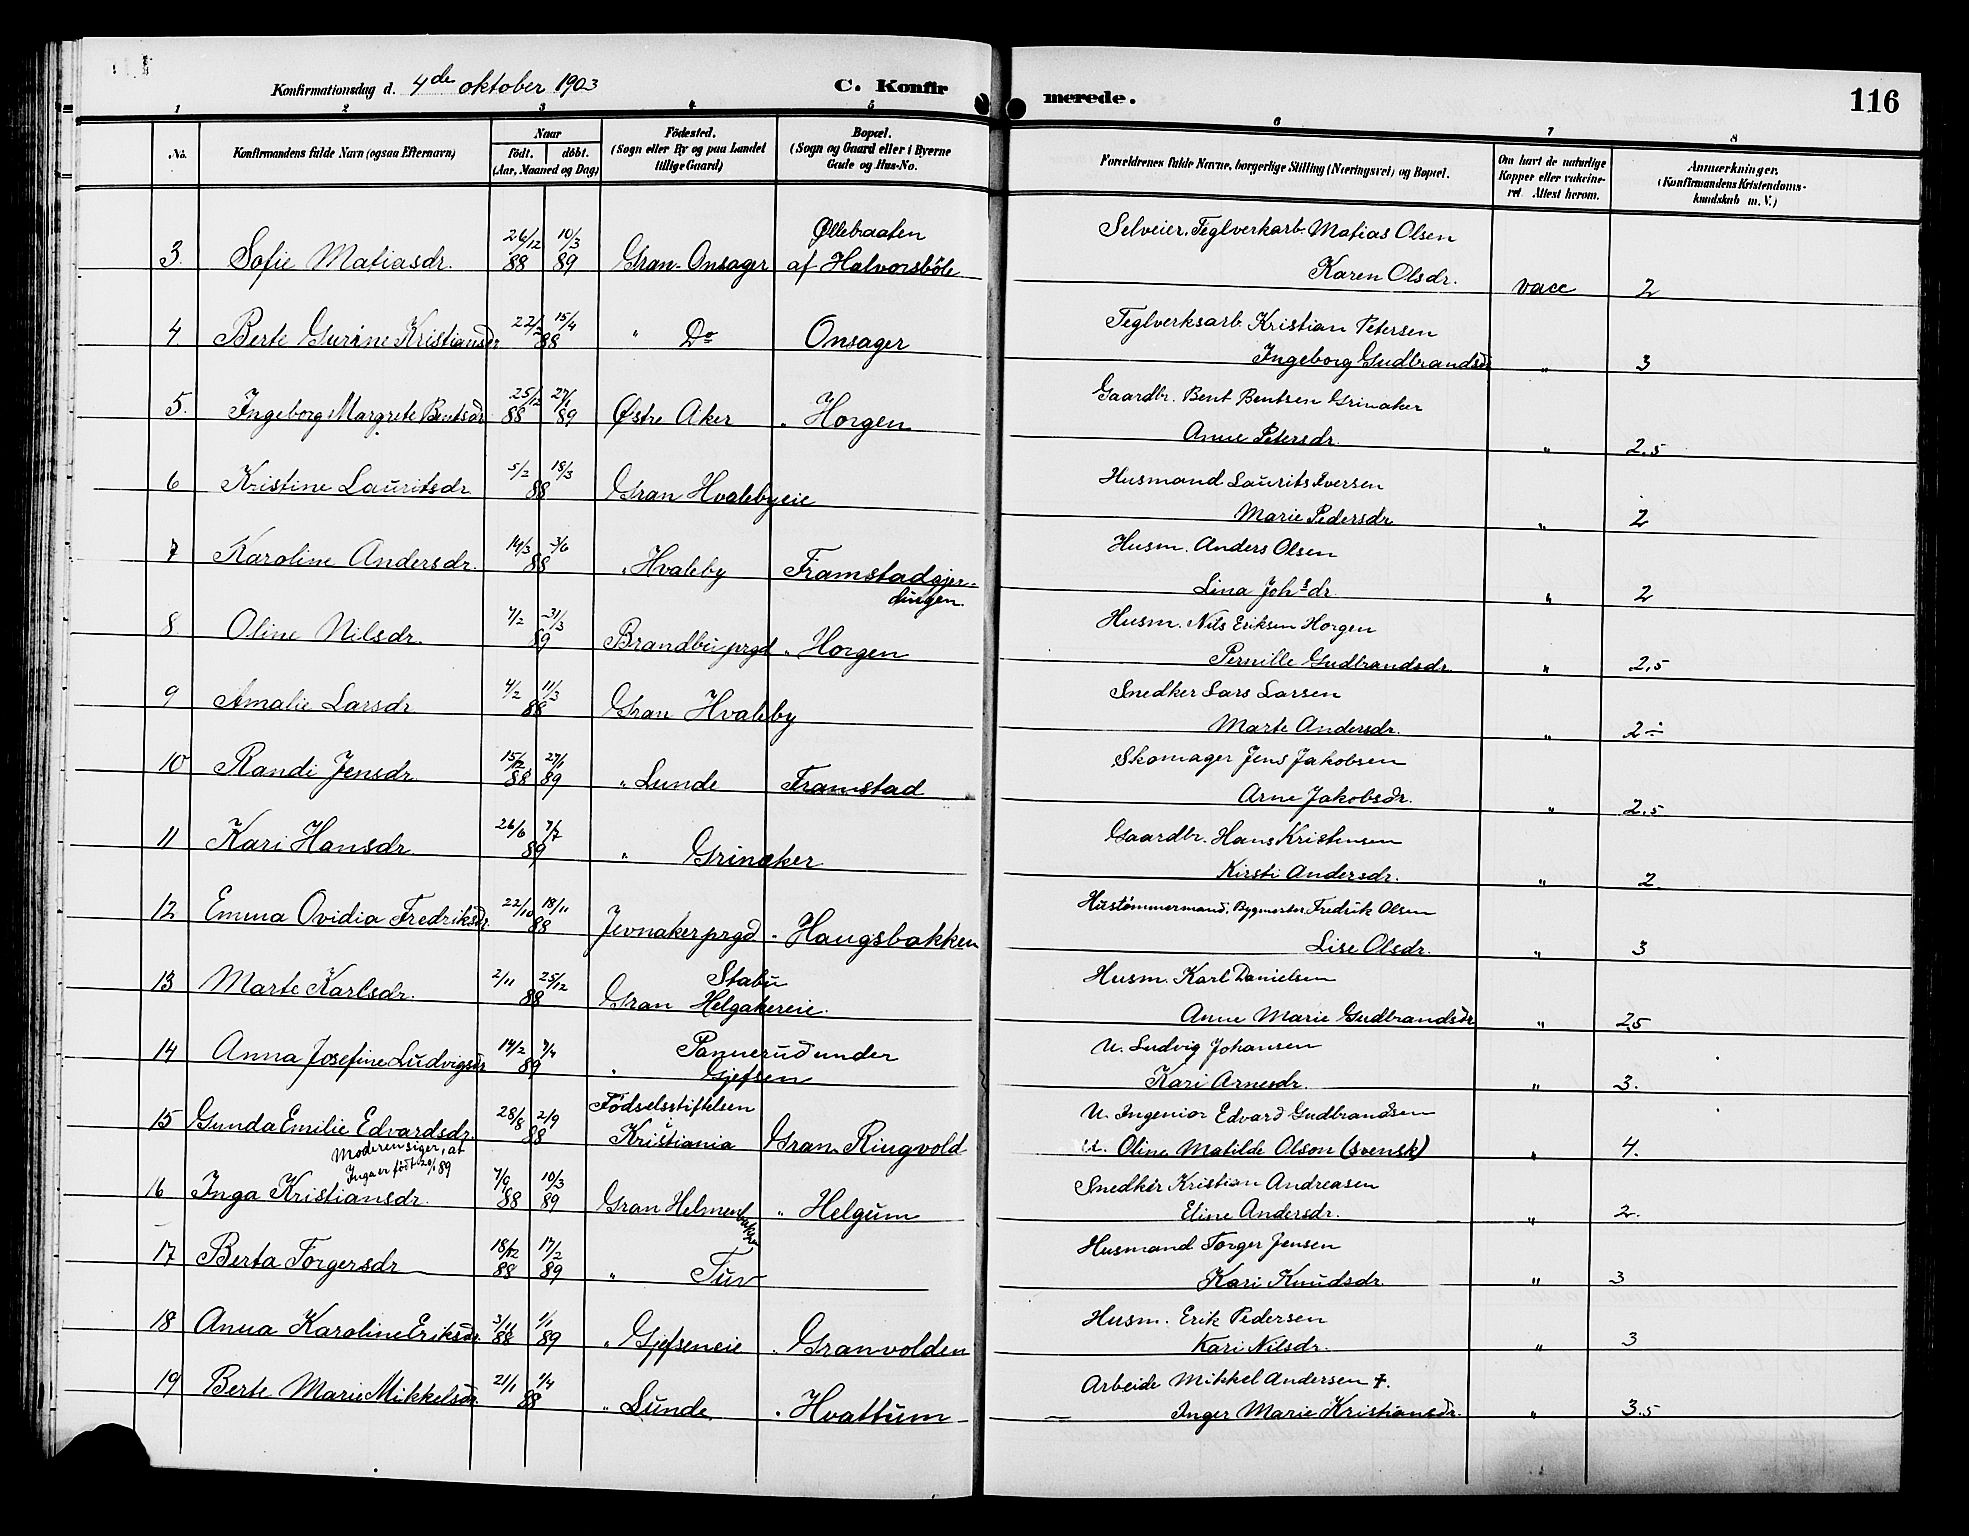 Konfirmationsdag d. 4de oktober 1903 C. Konfirmerede. 116
1 2 3 4 5 6 7 8
No. Konfirmandens fulde Navn (ogsaa Efternavn) Naar født. døbt. (Aar, Maaned og Dag) Fødested. (Sogn eller By og paa Landet tillige Gaard) Bopæl. (Sogn og Gaard eller i Byerne Gade og Hus-No. Forældrenes fulde Navne, borgerlige Stilling (Næringsvei) og Bopæl. Om havt de naturlige Kopper eller vakcineret. Attest herom. Anmærkninger. (Konfirmandens Kristendomskundskab m. V.)
26/12 10/3 Øllebraaten Selveier, Teglverkarb. Matias Olsen
3. Sofie Matiasdr. 88 89 Gran-Onsager af Halvorsbøle Karen Olsdr. vacc 2
22/2 15/4 Teglverksarb. Kristian Petersen
4 Berte Gurine Kristiansdr 88 " Do Onsager Ingeborg Gudbrandsdr " 3
25/12 27/1 Gaardbr. Bent Bentsen Grinaker
5. Ingeborg Margrete Bentsdr 88 89 Østre Aker " Horgen Anne Petersdr. " 2.5
5/2 18/3 Husmand Laurits Iversen
6 Kristine Lauritsdr. 88 Gran Hvalebyeie Marie Pedersdr " 2
14/3 3/6 Husm. Anders Olsen
7 Karoline Andersdr. 88 " Hvaleby Framstadgjerdingen. Lina Johsdr. " 2
7/2 31/3 Husm. Nils Eriksen Horgen
8. Oline Nilsdr. 89 Brandbu prgd " Horgen Pernille Gudbrandsdr. " 2.5
4/2 11/3 Snedker Lars Larsen
9 Amalie Larsdr 88 Gran Hvaleby Marte Andersdr. " 2÷
15/12 27/1 Skomager Jens Jakobsen
10 Randi Jensdr. 88 89 " Lunde Framstad Arne Jakobsdr. " 2.5
26/6 7/7 Gaardbr. Hans Kristensen
11 Kari Hansdr. 89 " Grinaker Kirsti Andersdr. " 2
22/10 18/11 Hustømmermand, Bygmester Fredrik Olsen
12 Emma Ovidia Fredriksdr. 88 Jevnaker prgd " Haugsbakken Lise Olsdr. " 3
2/11 25/12 Stabu Husm. Karl Danielsen
13 Marte Karlsdr. 88 Gran Helgakereie. Anne Marie Gudbrandsdr " 2.5
14/2 7/4 Pannerud under U. Ludvig Johansen
14 Anna Josefine Ludvigsdr 89 " Gjefsen Kari Arnesdr. " 3.
28/8 2/9 Fødselsstiftelsen U. Ingeniør Edvard Gudbrandsen
15 Gunda Emilie Edvardsdr. 88 i Kristiania Gran. Ringvold U. Oline Matilde Olson (svensk) " 4.
Moderen siger, at
Inga er født 20/1 89
7/9 10/3 Snedker Kristian Andreasen
16 Inga Kristiansdr. 88 89 Gran Helmenbakken " Helgum Eline Andersdr. " 2.
18/12 17/2 Husmand Torger Jensen
17 Berta Torgersdr 88 89 " Tuv Kari Knudsdr. " 3
3/11 1/1 Husm. Erik Pedersen
18 Anna Karoline Eriksdr. 88 89 " Gjefseneie " Granvolden Kari Nilsdr. " 3
21/1 1/4 Arbeide Mikkel Andersen †.
19 Berte Marie Mikkelsdr. 88 " Lunde " Hvattum Inger Marie Kristiansdr. " 3.5